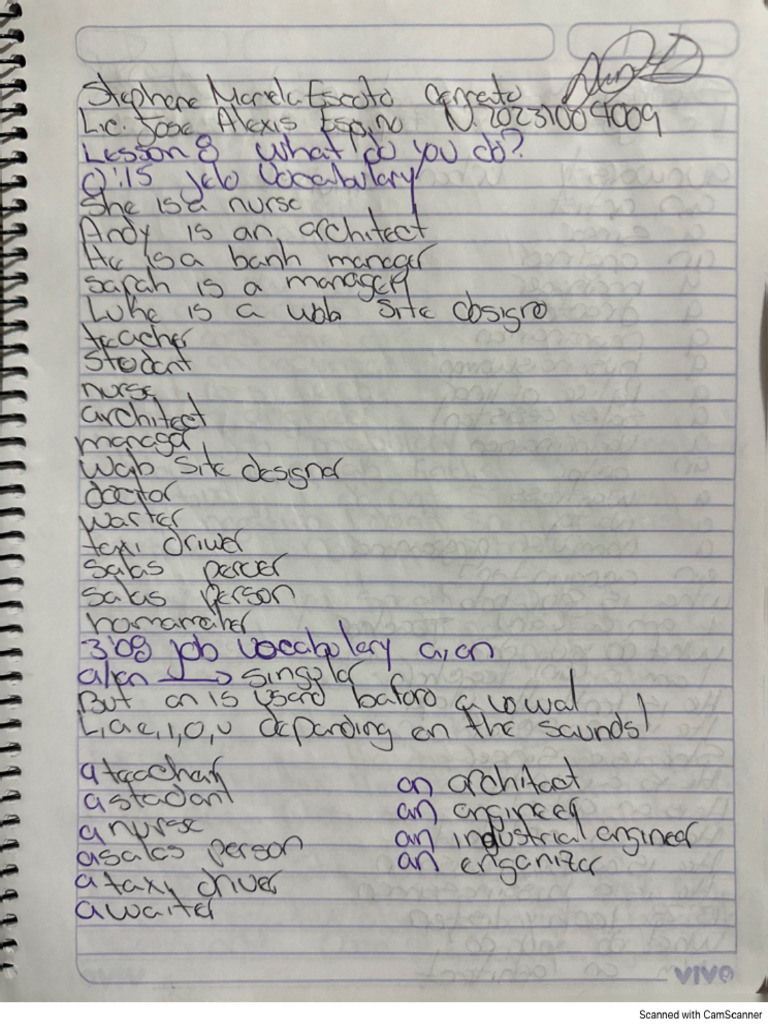 Stephane Mariela Escoto Cerrato
Lic. Jose Alexis Espino N. 20231009009
Lesson 8 What do you do?
0:15 job Vocabulary
She is a nurse
Andy is an architect
He is a bank manager
Sarah is a manager
Luke is a web site designe
teacher
Student
nurse
architect
manager
Web site designer
doctor
waiter
taxi driver
Sales percer
Sales person
homemaker
3:08 job vocabulary a, an
a/an → singular
But an is used before a vowel
a, e, i, o, u depending on the sounds
a teacher
a student
a nurse
a sales person
a taxy driver
a waiter
an architect
an engineer
an industrial engineer
an organizer
VIVE
Scanned with CamScanner